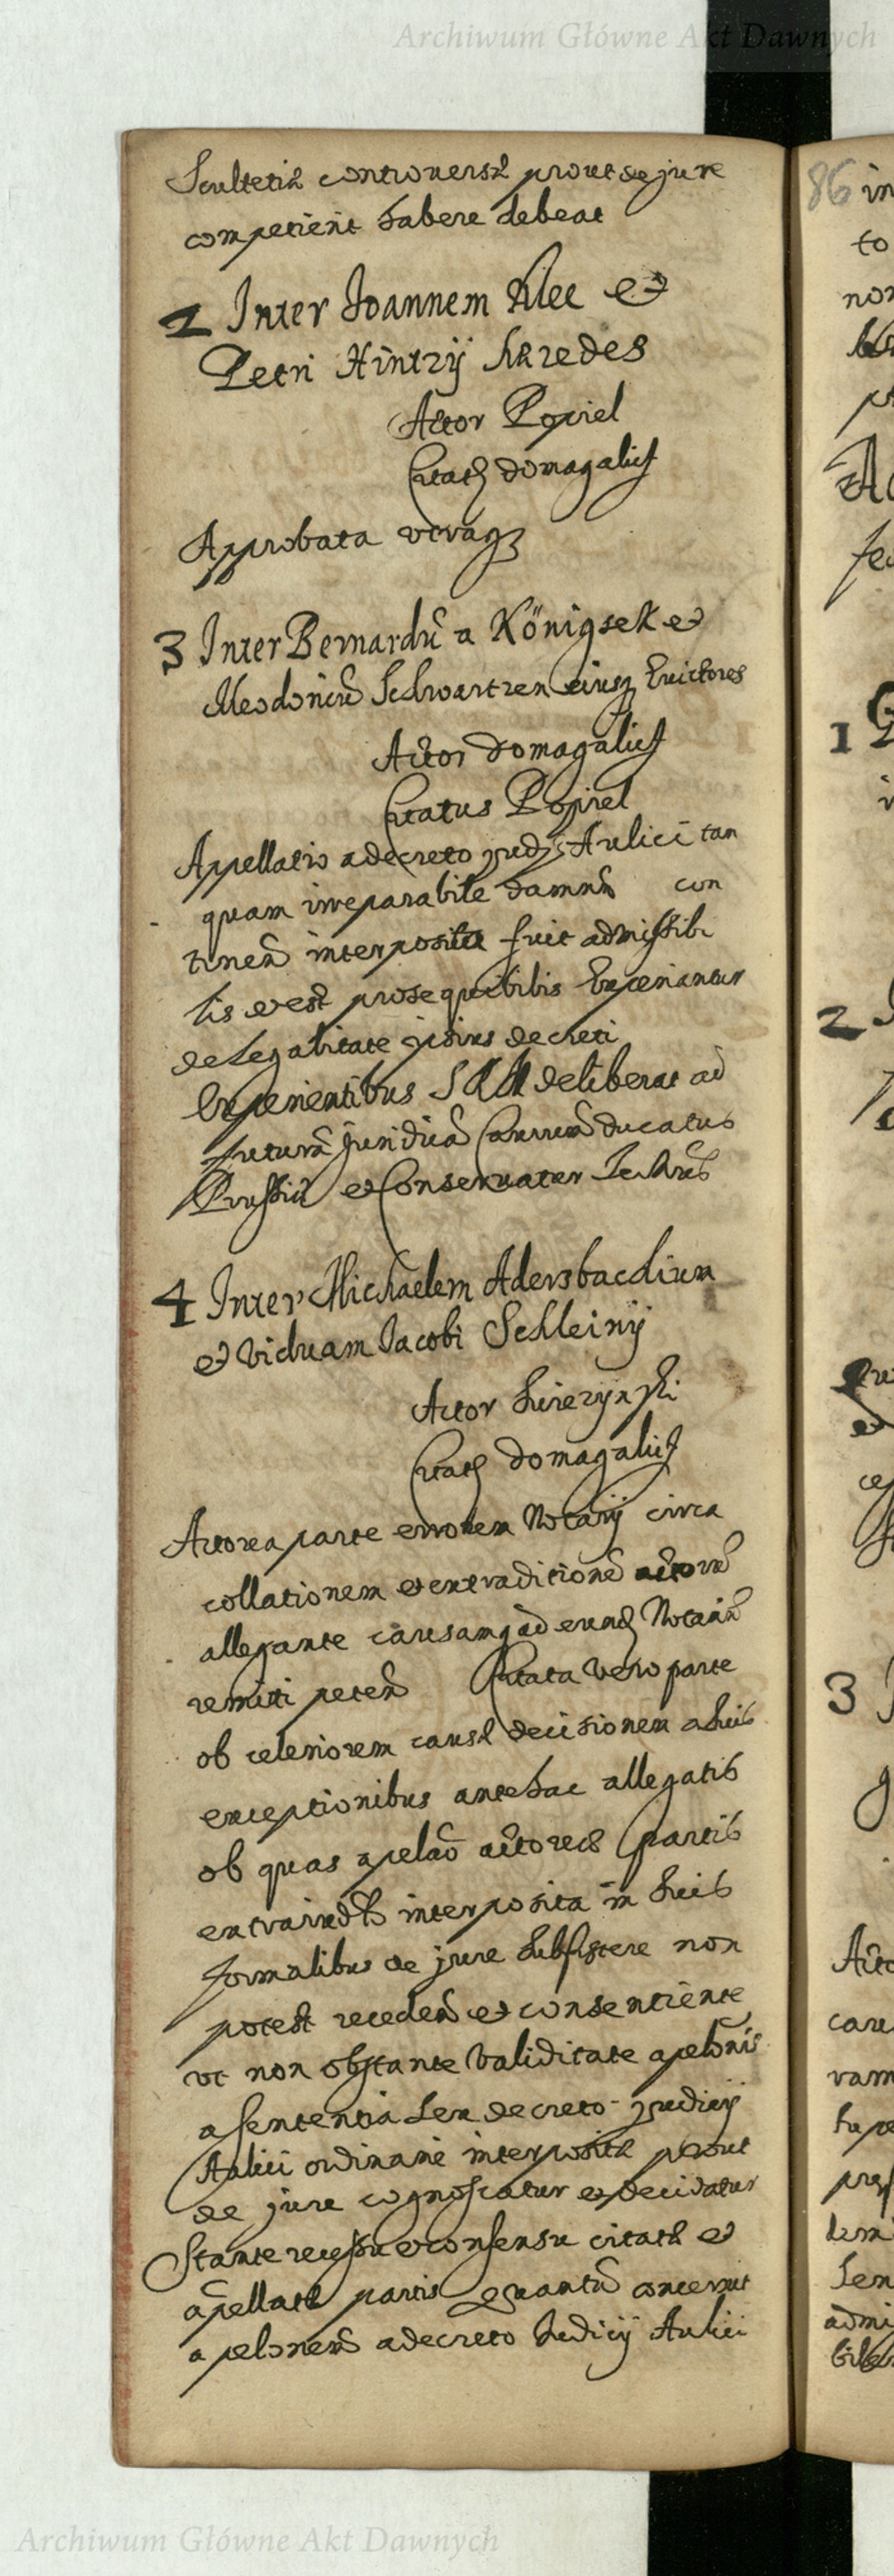 Archiwum Główne Akt Dawnych
Scultetiæ controversæ prout de jure
competierit habere debeat
2 Inter Joannem Klee et
Petri Hintzij hæredes
Actor Popiel
Citatq domagalicz
Approbata utraqz
3 Inter Bernardũ a Königsek et
Schwartzen eiusq Evictores
Actor domagalicz
Citatus Popiel
Appellatio a decreto Judij Aulici tan
quam irreparabile damnũ con
tinẽn interposita fuit admissibi
lis et est prosequibilis Experiantur
de legalitate ipsius decreti
Experientibus SRM deliberat ad
futurã juridicã ducatus
Prussiæ et Conservatur
4 Inter Michaelem Adersbachium
et viduam Jacobi Schleinij
Actor
Citatq domagalicz
Actorea parte errorem Notarij circa
collationem et extraditionẽ actorũ
allegante causamq ad eundẽ Notariũ
remitti petẽn Citata vero parte
ob celeriorem causæ decisionem a suis
exceptionibus antehac allegatis
ob quas apelaõ actoreæ partis
interposita in suis
formalibus de jure subsistere non
potest recedẽn et consentiente
ut non obstante validitate apelõnis
a sententia seu decreto Judicij
Aulici ordinarie interpositæ prout
de jure cognoscatur et decidatur
Stante recessu et consensu citatæ et
apellatæ partis quantũ concernit
apelonem a decreto Judicij Aulici
86 in
to
non
1
2
3
Acto
cau
vam
Archiwum Główne Akt Dawnych